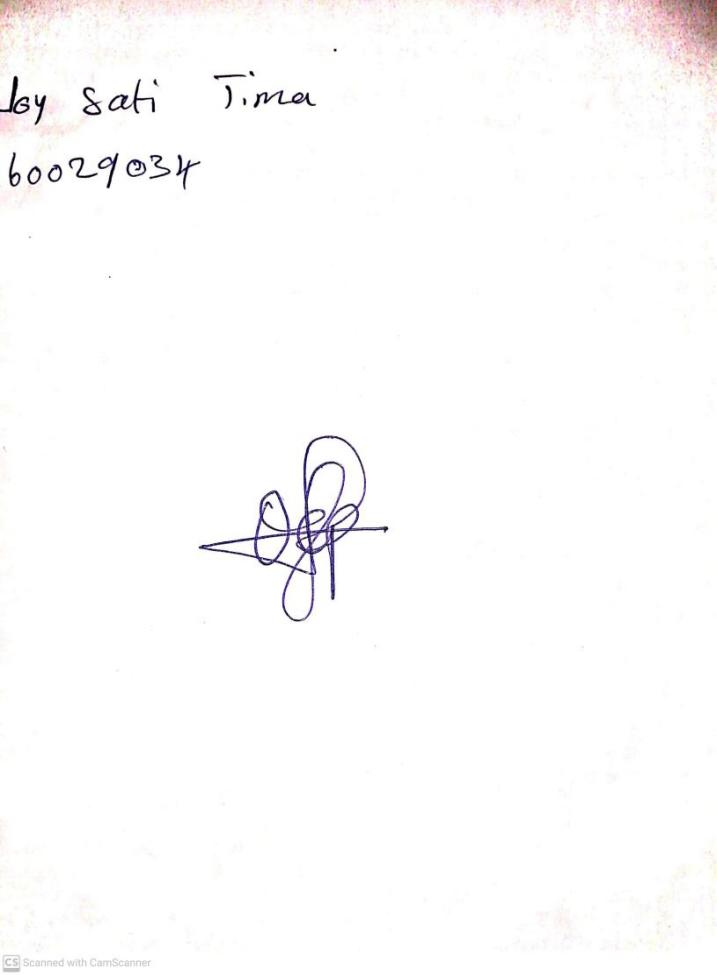 Joy Sati Tima
60029034
CS Scanned with CamScanner